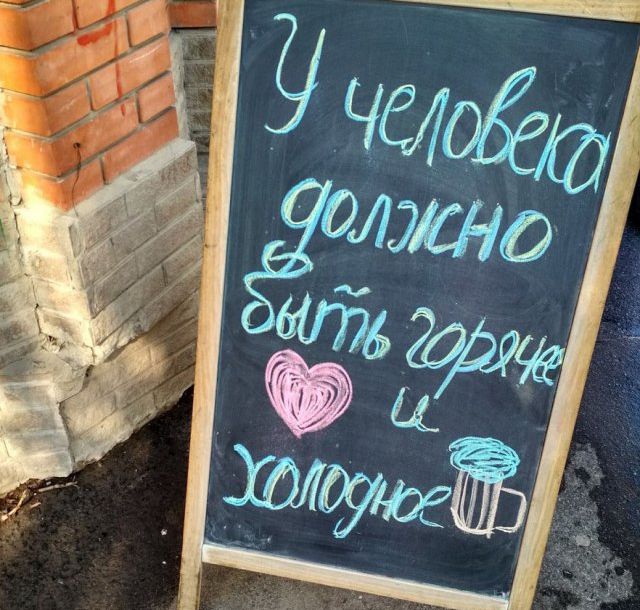 У человека
должно
быть горячее
и
холодное